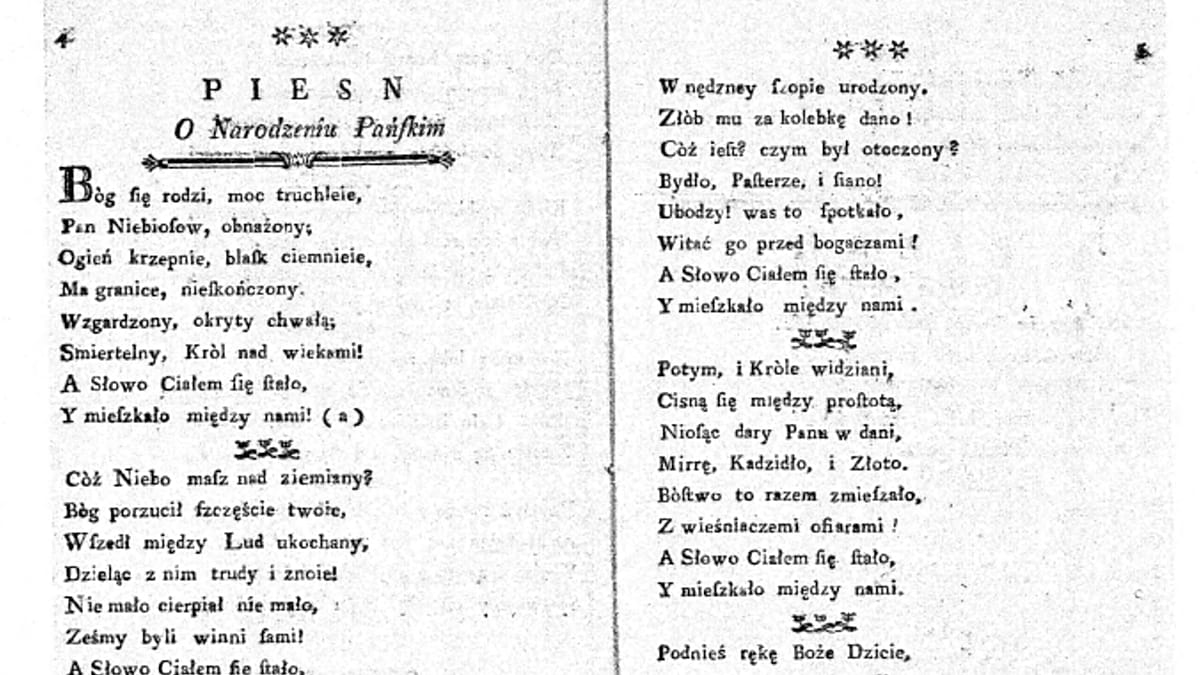 4
P I E S N
O Narodzeniu Pańſkim
Bòg ſię rodzi, moc truchleie,
Pan Niebioſow, obnażony;
Ogień krzepnie, blaſk ciemnieie,
Ma granice, nieſkończony.
Wzgardzony, okryty chwałą;
Smiertelny, Kròl nad wiekami!
A Słowo Ciałem ſię ſtało,
Y mieſzkało między nami! (a)
Còż Niebo maſz nad ziemiany?
Bòg porzucił ſzczęście twoie,
Wſzedł między Lud ukochany,
Dzieląc z nim trudy i znoie!
Nie mało cierpiał nie mało,
Ześmy byli winni ſami!
A Słowo Ciałem ſię ſtało,
5
W nędzney ſzopie urodzony.
Złòb mu za kolebkę dano!
Còż ieſt? czym był otoczony?
Bydło, Paſterze, i ſiano!
Ubodzy! was to ſpotkało,
Witać go przed bogaczami!
A Słowo Ciałem ſię ſtało,
Y mieſzkało między nami.
Potym, i Kròle widziani,
Cisną ſię między proſtotą,
Nioſąc dary Panu w dani,
Mirrę, Kadzidło, i Złoto.
Bòſtwo to razem zmieſzało,
Z wieśniaczemi ofiarami!
A Słowo Ciałem ſię ſtało,
Y mieſzkało między nami.
Podnieś rękę Boże Dzicie,